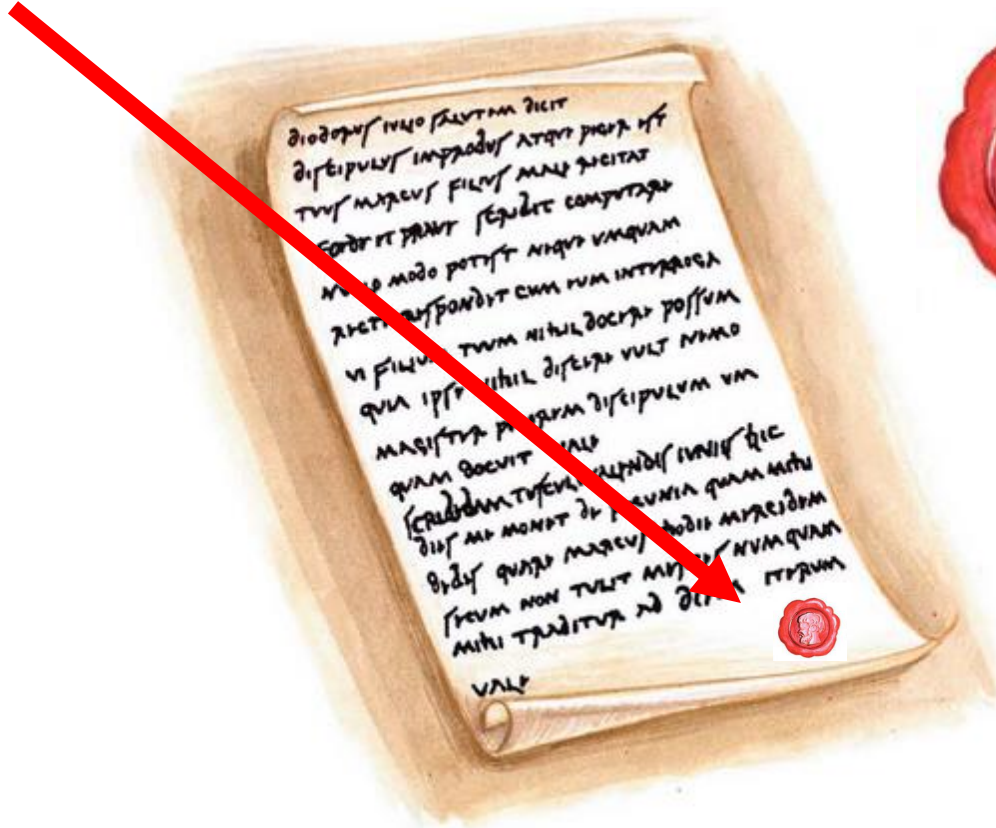 DIODORVS IVLIO SALVTEM DICIT
DISCIPVLVS IMPROBVS ATQVE PIGER EST
TVVS MARCVS FILIVS MALE RECITAT
FOEDE ET PRAVE SCRIBIT COMPVTARE
NVLLO MODO POTEST NEQVE VMQVAM
RECTE RESPONDET CVM EVM INTERROGA
VI FILIVM TVVM NIHIL DOCERE POSSVM
QVIA IPSE NIHIL DISCERE VVLT NEMO
MAGISTER PEIOREM DISCIPVLVM VM
QVAM DOCVIT VALE
SCRIBEBAM TVSCVLI KALENDIS IVNIIS HIC
DIES ME MONET DE PECVNIA QVAM MIHI
DEBES QVARE MARCVS HODIE MERCEDEM
SECVM NON TVLIT MERCES NVMQVAM
MIHI TRADITVR AD DIEM ITERVM
VALE